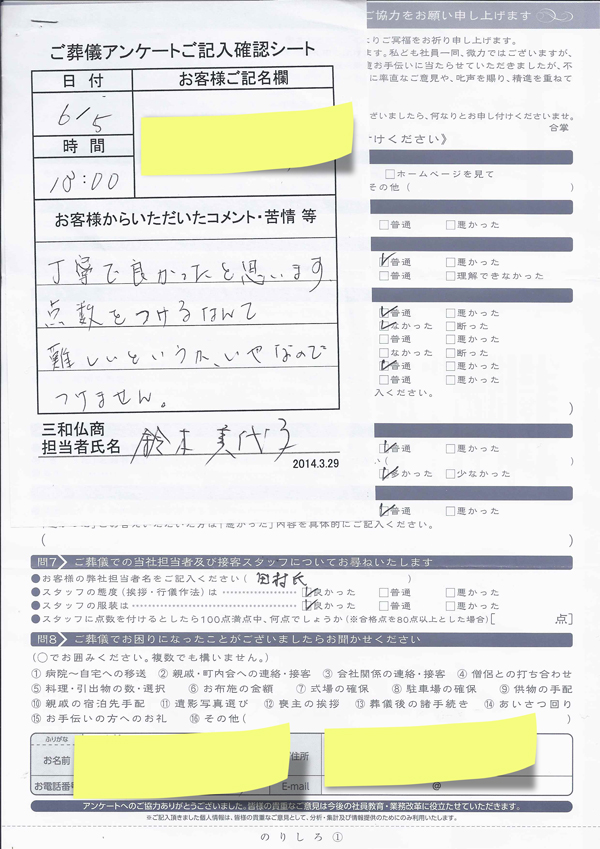 ご協力をお願い申し上げます
ご葬儀アンケートご記入確認シート
日付
お客様ご記名欄
6/5
時間
18:00
お客様からいただいたコメント・苦情 等
丁寧で良かったと思います
点数をつけるなんて
難しいというか、いやなので
つけません。
三和仏商
担当者氏名
鈴木美代子
2014.3.29
よりご冥福をお祈り申し上げます。
ます。私ども社員一同、微力ではございますが、
お手伝いに当たらせていただきましたが、不
に率直なご意見や、叱声を賜り、精進を重ねて
ざいましたら、何なりとお申し付けくださいませ。
合掌
けください》
□ホームページを見て
その他（　）
□普通 □悪かった
□普通 □悪かった
□普通 □理解できなかった
□普通 □悪かった
□なかった □断った
□普通 □悪かった
□なかった □悪かった
□普通 □悪かった
□普通 □悪かった
入ください。
）
□普通 □悪かった
）
□多かった □少なかった
□普通 □悪かった
「悪かった」内容を具体的にご記入ください。
（　）
問7 ご葬儀での当社担当者及び接客スタッフについてお尋ねいたします
●お客様の弊社担当者名をご記入ください（ 田村氏 ）
●スタッフの態度（挨拶・行儀作法）は □良かった □普通 □悪かった
●スタッフの服装は □良かった □普通 □悪かった
●スタッフに点数を付けるとしたら100点満点中、何点でしょうか（※合格点を80点以上とした場合）［　点］
問8 ご葬儀でお困りになったことがございましたらお聞かせください
（○でお囲みください。複数でも構いません。）
①病院～自宅への移送 ②親戚・町内会への連絡・接客 ③会社関係の連絡・接客 ④僧侶との打ち合わせ
⑤料理・引出物の数・選択 ⑥お布施の金額 ⑦式場の確保 ⑧駐車場の確保 ⑨供物の手配
⑩親戚の宿泊先手配 ⑪遺影写真選び ⑫喪主の挨拶 ⑬葬儀後の諸手続き ⑭あいさつ回り
⑮お手伝いの方へのお礼 ⑯その他（　）
ふりがな
お名前
住所
お電話番号
E-mail
@
アンケートへのご協力ありがとうございました。皆様の貴重なご意見は今後の社員教育・業務改革に役立たせていただきます。
※ご記入頂きました個人情報は、皆様の貴重なご意見として、分析・集計及び情報提供のためにのみ利用いたします。
のりしろ①